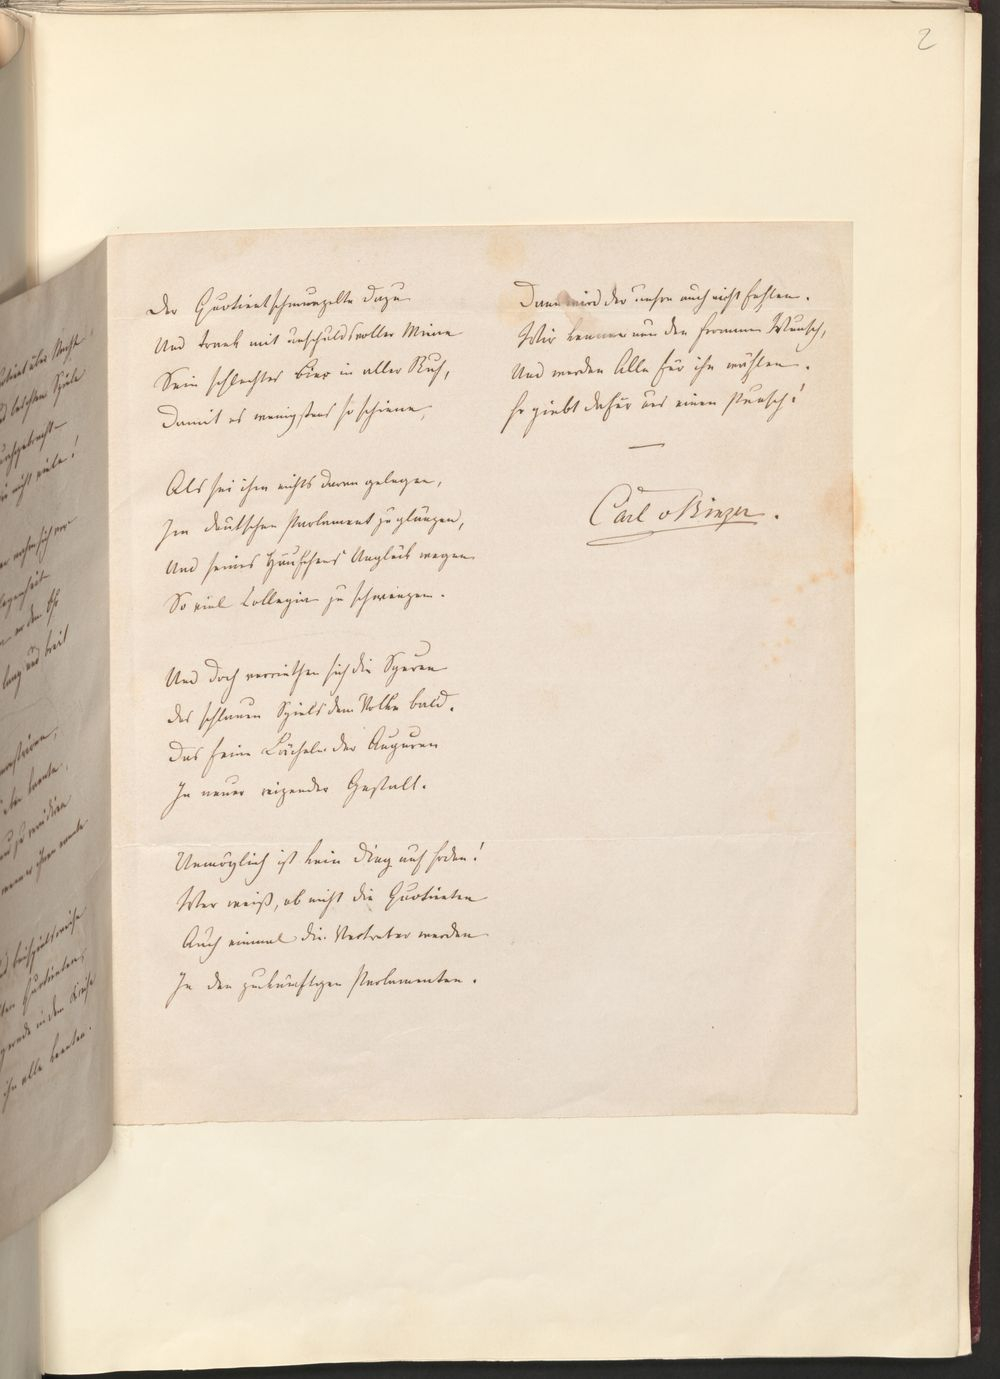 2
Der Quotient schmunzelte dazu
Und trank mit unschuldsvoller Miene
Sein schlechtes Bier in aller Ruh,
Damit es wenigstens so schiene,
Als sei ihm nichts daran gelegen,
Im deutschen Parlament zu glänzen,
Und seines Häufchens Unglück wegen
So viel Collegia zu schwänzen.
Und doch verriethen sich die Spuren
Des schlauen Spiels dem Volke bald.
Das feine Lächeln der Auguren
In neuer reizender Gestalt.
Unmöglich ist kein Ding auf Erden!
Wer weiß, ob nicht die Quotienten
Auch einmal die Vertreter werden
In den zukünftigen Parlamenten.
Dann wird der unsre auch nicht fehlen.
Wir kennen nun den frommen Wunsch,
Und werden Alle für ihn wählen.
Er giebt dafür uns einen Punsch!
Carl v Binzer.
über Nacht
nicht viele!
nahm sich vor
lang und breit
Quotienten
gerade in dem Kreise
ihn alle kannten.